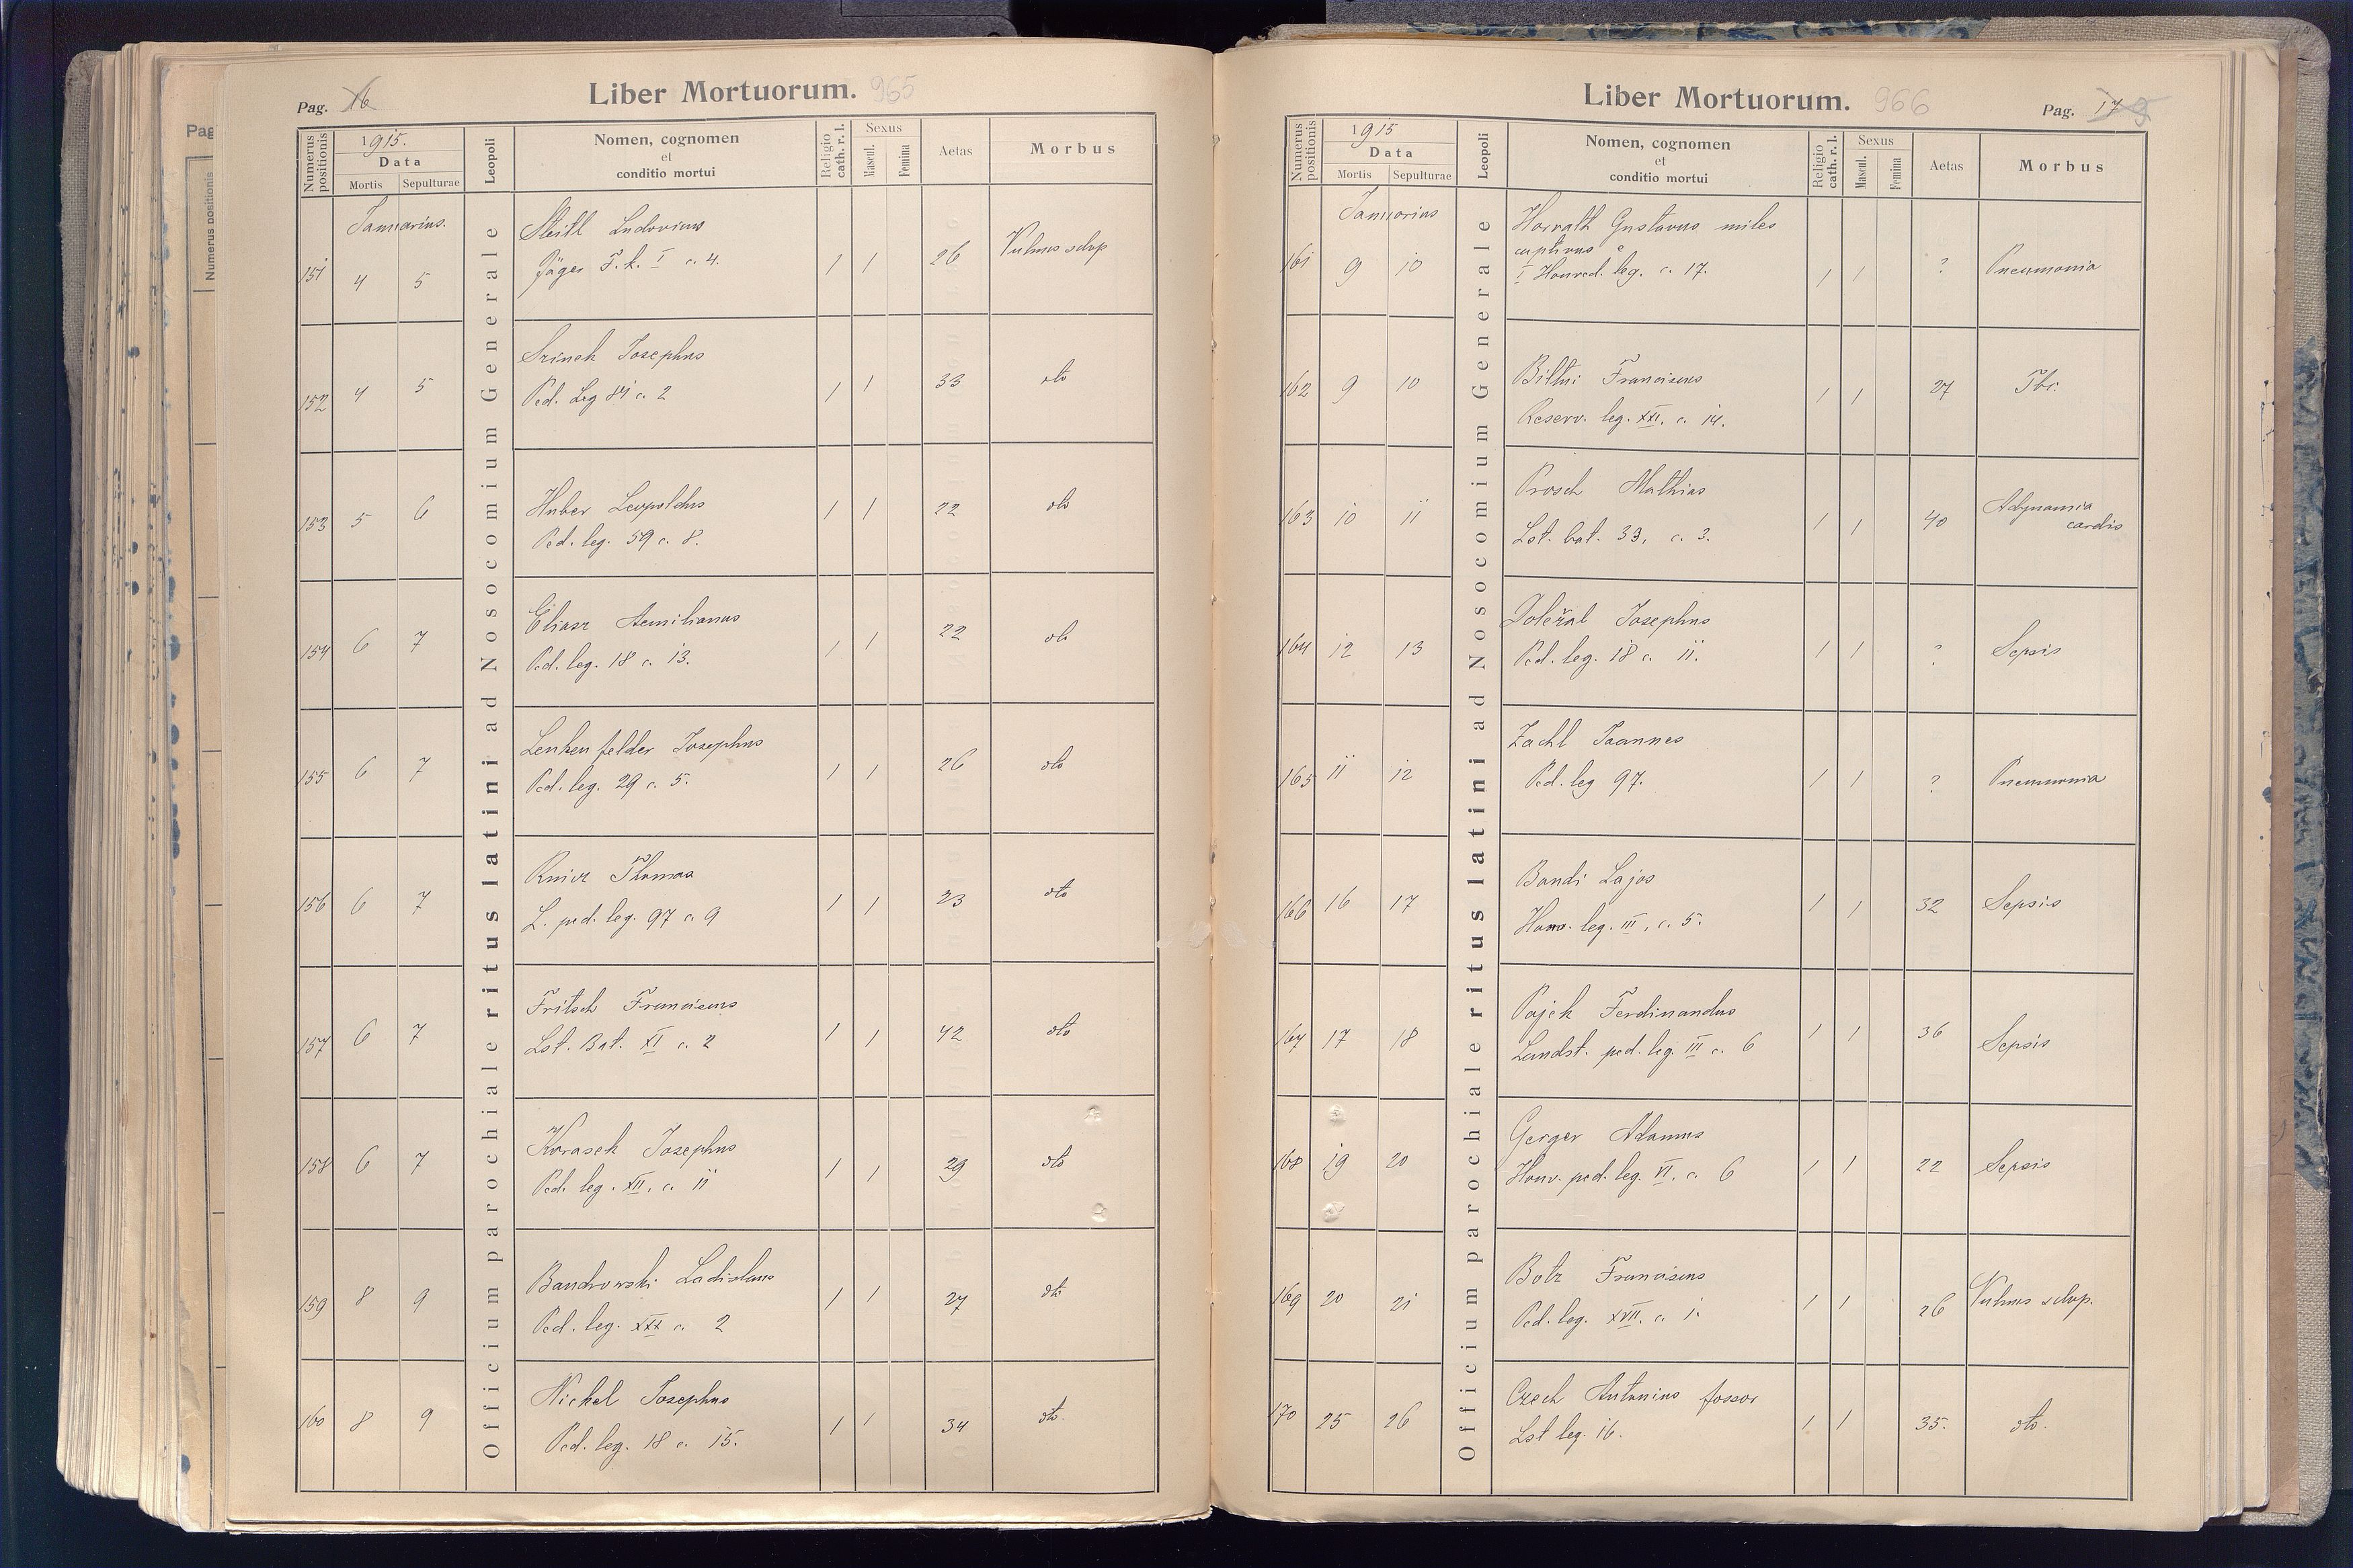 Pag. 16
Liber Mortuorum. 965
Numerus positionis
1915.
Data
Mortis Sepulturae
Leopoli
Nomen, cognomen
et
conditio mortui
Religio
cath. r. l.
Sexus
Mascul. Femina
Aetas
Morbus
Officium parochiale ritus latini ad Nosocomium Generale
Januarius.
Ludovicus
151 4 5 Jäger F. k. I c. 4. 1 1 26 Vulnus sclop
Josephus
152 4 5 Ped. Leg 81 c. 2 1 1 33 dto
Huber Leopoldus
153 5 6 Ped. leg. 59 c. 8. 1 1 22 dto
Eliasz Aemilianus
154 6 7 Ped. leg. 18 c. 13. 1 1 22 dto
Lenkenfelder Josephus
155 6 7 Ped. leg. 29 c. 5. 1 1 26 dto
Thomas
156 6 7 L. ped. leg. 97 c. 9 1 1 23 dto
Fritsch Franciscus
157 6 7 Lst. Bat. XI c. 2 1 1 42 dto
Korasek Josephus
158 6 7 Ped. leg. XII. c. 11 1 1 29 dto
Bandrowski Ladislaus
159 8 9 Ped. leg. XXX c. 2 1 1 27 dto
Nickel Josephus
160 8 9 Ped. leg. 18 c. 15. 1 1 34 dto.
Liber Mortuorum. 966
Pag. 17
Numerus positionis
1915
Data
Mortis Sepulturae
Leopoli
Nomen, cognomen
et
conditio mortui
Religio
cath. r. l.
Sexus
Mascul. Femina
Aetas
Morbus
Officium parochiale ritus latini ad Nosocomium Generale
Januarius
Horvath Gustavus miles
captivus
161 9 10 I Honved. leg. c. 17. 1 1 ? Pneumonia
Franciscus
162 9 10 Reserv. leg. XXI. c. 14. 1 1 27 Tbc.
Prosch Mathias
163 10 11 Lst. bat. 33, c. 3. 1 1 40 Adynamia
cordis
Doležal Josephus
164 12 13 Ped. leg. 18 c. 11. 1 1 ? Sepsis
Zachl Joannes
165 11 12 Ped. leg 97. 1 1 ? Pneumonia
Bandi Lajos
166 16 17 Honv. leg. III, c. 5. 1 1 32 Sepsis
Pajek Ferdinandus
167 17 18 Landst. ped. leg. III c. 6 1 1 36 Sepsis
Gerger Adamus
168 19 20 Honv. ped. leg. VI. c. 6 1 1 22 Sepsis
Botz Franciscus
169 20 21 Ped. leg. XVII. c. 1. 1 1 26 Vulnus sclop.
Czech Antonius fossor
170 25 26 Lst leg. 16. 1 1 35. dto.
Pag
Numerus positionis